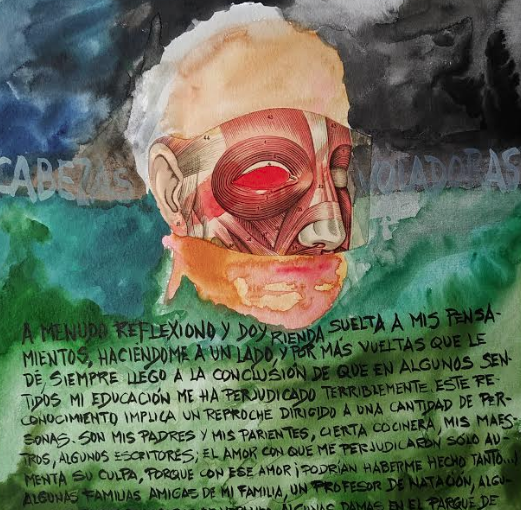 CABEZAS VOLADORAS
A MENUDO REFLEXIONO Y DOY RIENDA SUELTA A MIS PENSA-
MIENTOS, HACIÉNDOME A UN LADO, Y POR MÁS VUELTAS QUE LE
DÉ, SIEMPRE LLEGO A LA CONCLUSIÓN DE QUE EN ALGUNOS SEN-
TIDOS MI EDUCACIÓN ME HA PERJUDICADO TERRIBLEMENTE. ESTE RE-
CONOCIMIENTO IMPLICA UN REPROCHE DIRIGIDO A UNA CANTIDAD DE PER-
SONAS. SON MIS PADRES Y MIS PARIENTES, CIERTA COCINERA, MIS MAES-
TROS, ALGUNOS ESCRITORES; EL AMOR CON QUE ME PERJUDICARON SOLO AU-
MENTA SU CULPA, PORQUE CON ESE AMOR ¡PODRÍAN HABERME HECHO TANTO...!
ALGUNAS FAMILIAS AMIGAS DE MI FAMILIA, UN PROFESOR DE NATACIÓN, ALGU-
ALGUNAS DAMAS EN EL PARQUE DE